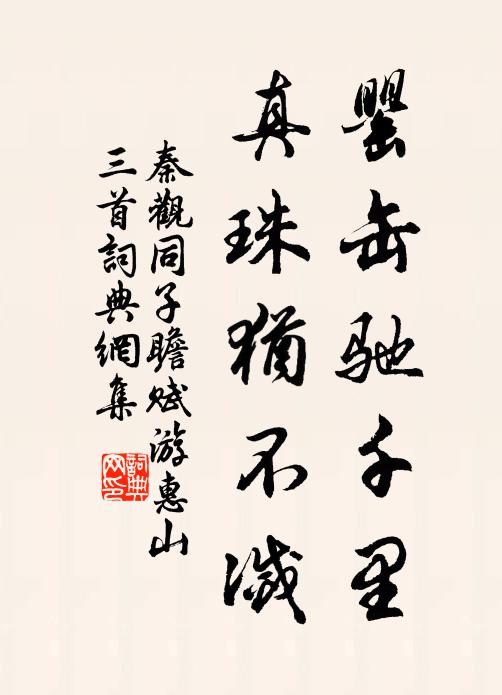 罌缶馳千里
真珠猶不滅
秦觀同子瞻賦游惠山
三首詞典網集
詞典
网印